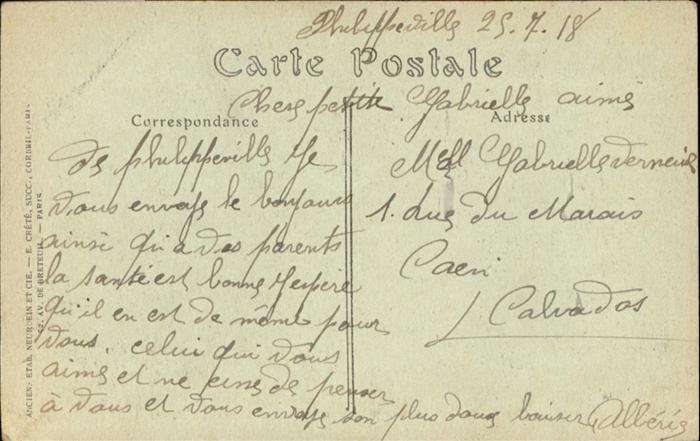 Philippeville 25.7.18
Carte Postale
Chere petite Gabrielle aimé
Correspondance
Adresse
de philippeville Je
vous envoye le bonjours
ainsi qu'a vos parents
la santé est bonne J'espère
qu'il en est de même pour
vous. celui qui vous
aime et ne cesse de penser
à vous et vous envoye son plus doux baiser Albéric
Mell Gabrielle Verneuil
1. rue du Marais
Caen
Calvados
ANCIENS ETAB. NEURDEIN ET CIE. — E. CRÉTÉ, SUCC., CORBEIL-PARIS
52, AV. DE BRETEUIL — PARIS